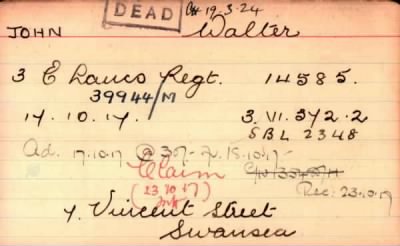 DEAD 19.3.24
JOHN Walter
3 E Lancs Regt. 14585.
39944/M
17.10.17. 3.VI.372.2
SBL 2348
Ad. 17.10.17 @
Claim
(23 10 17) Rec: 23.10.17
7. Vincent Street
Swansea